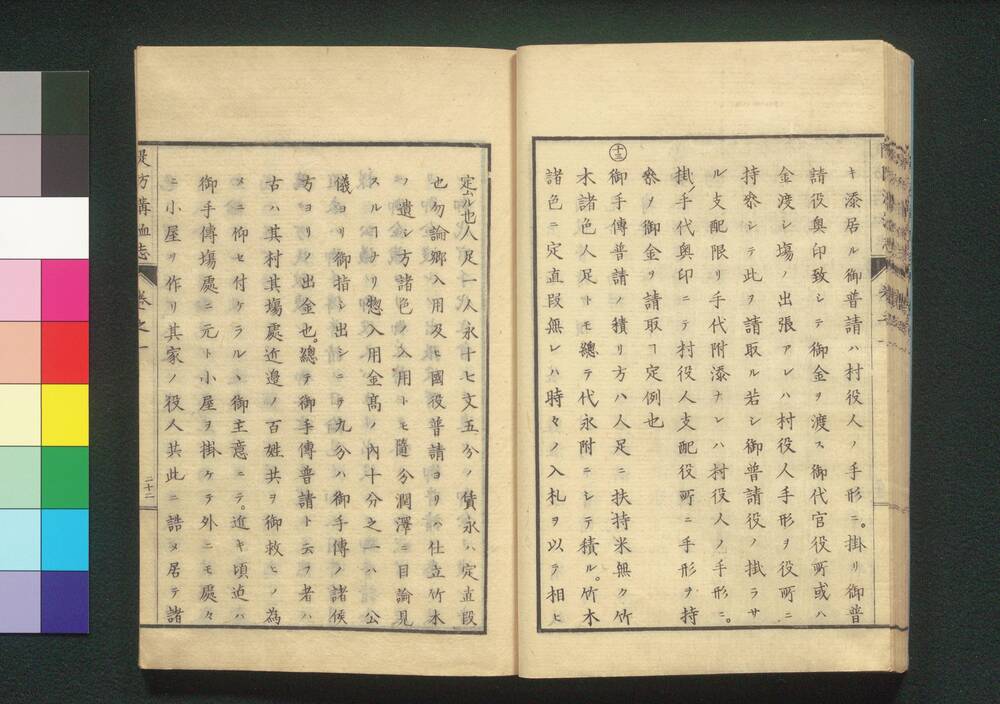 キ添居ル御普請ハ村役人ノ手形ニ。掛リ御普
請役奥印致シテ御金ヲ渡ス御代官役所或ハ
金渡シ場ノ出張アレハ村役人手形ヲ役所ニ
持參シテ此ヲ請取ル若シ御普請役ノ掛ラサ
ル支配限リ手代附添ナレハ村役人ノ手形ニ。
掛ノ手代奥印ニテ村役人支配役所ニ手形ヲ持
參ノ御金ヲ請取ヿ定例也
十三
御手傳普請ノ積リ方ハ人足ニ扶持米無ク竹
木諸色人足トモ總テ代永附ニシテ積ル。竹木
諸色ニ定直段無レハ時々ノ入札ヲ以テ相ヒ
定ムル也人足一人永十七文五分ノ賃永ハ定直段
也勿論郷入用及ヒ國役普請ヨリハ仕立竹木
ノ遣シ方諸色ノ入用トモ隨分潤澤ニ目論見
スルヿナリ惣入用金高ノ內十分之一ハ公
儀ヨリ御指シ出シニテ九分ハ御手傳ノ諸侯
方ヨリノ出金也。總テ御手傳普請ト云フ者ハ
古ハ其村其場處近邊ノ百姓共ヲ御救ヒノ為
メニ仰セ付ケラルヽ御主意ニテ。近キ頃迠ハ
御手傳場處ニ元ト小屋ヲ掛ケテ外ニモ處々
ニ小屋ヲ作リ其家ノ役人共此ニ詰メ居テ諸
堤方溝洫志
卷之一
二十二